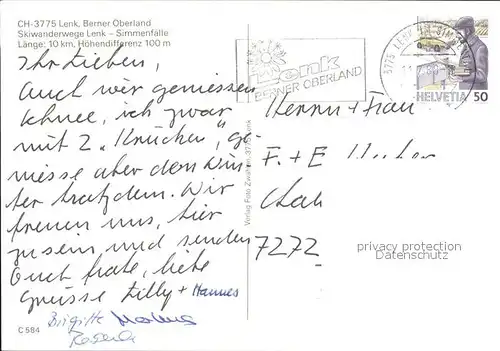 CH-3775 Lenk, Berner Oberland
Skiwanderwege Lenk – Simmenfälle
Länge: 10 km, Höhendifferenz 100 m
Ihr Lieben,
Auch wir geniessen
Schnee, ich zwar
mit 2 "Krücken", ge-
niesse aber den Win-
ter trotzdem. Wir
freuen uns, hier
zu sein, und senden
Euch frohe, liebe
Grüsse Lilly + Hannes
Brigitte
C 584
Verlag Foto Zwahlen, 3775 Lenk
Lenk
BERNER OBERLAND
3775 LENK IM SIMMENTAL
HELVETIA 50
Herrn + Frau
F. + E
7272
privacy protection
Datenschutz